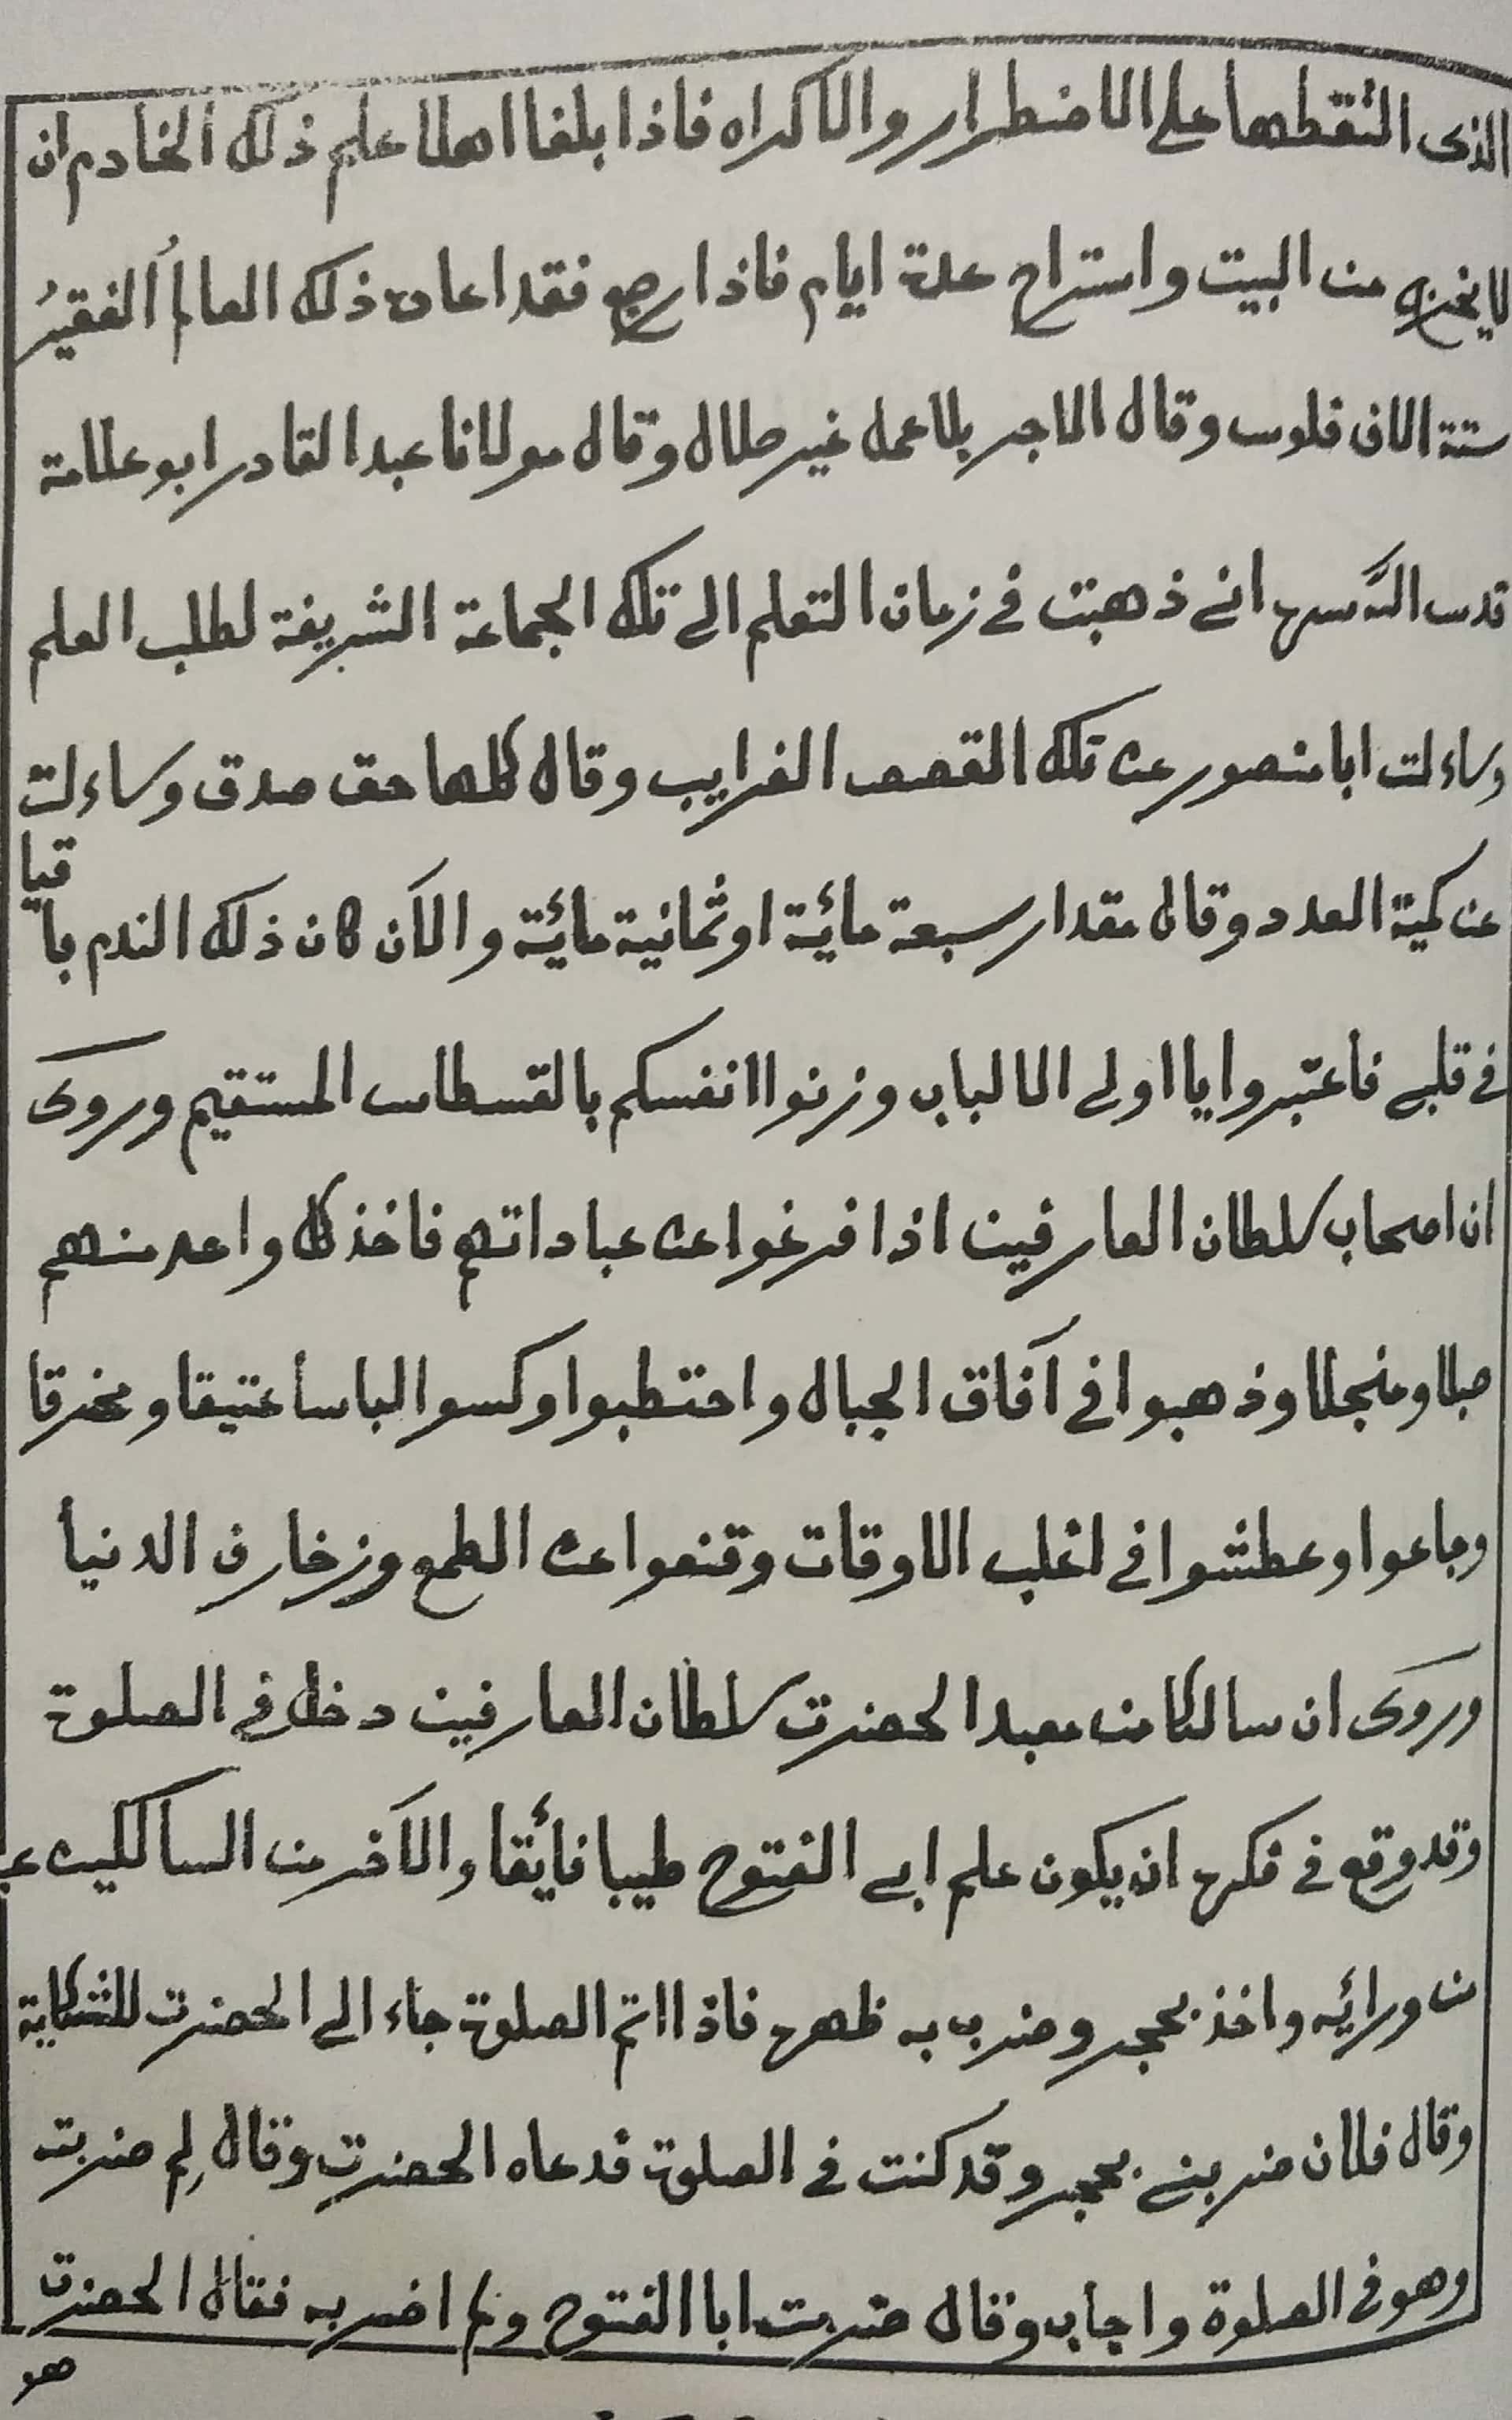 الذى التقطها على الاضطرار والاكراه فاذا بلغا اهلا علم ذلك الخادم ان
لا يخرج من البيت واستراح عدة ايام فاذا رجع فقد اعاد ذلك العالم الفقير
ستة الاف فلوس وقال الاجر بلا عمل غير حلال وقال مولانا عبد القادر ابو علامة
قدس الله سره انى ذهبت فى زمان التعلم الى تلك الجماعة الشريفة لطلب العلم
وساءلت ابا منصور عن تلك القصص الغرايب وقال كلها حق صدق وساءلت
عن كمية العدد وقال مقدار سبعة مائة او ثمانية مائة والآن كان ذلك الندم با قيا
فى قلبى فاعتبروا يا اولى الالباب وزنوا انفسكم بالقسطاس المستقيم وروى
ان اصحاب سلطان العارفين اذا فرغوا عن عباداتهم فاخذ كل واحد منهم
حبلا ومنجلا وذهبوا فى آفاق الجبال واحتطبوا وكسوا لباسا عتيقا ومخرقا
وجاعوا وعطشوا فى اغلب الاوقات وقنعوا عن الطمع وزخارف الدنيا
وروى ان سالكا من معبد الحضرت سلطان العارفين دخل فى الصلوة
وقد وقع فى فكره ان يكون علم ابى الفتوح طيبا فائقا والآخر من السالكين
من ورائه واخذ بحجر وضرب به ظهره فاذا اتم الصلوة جاء الى الحضرت للشكاية
وقال فلان ضربنى بحجر وقد كنت فى الصلوة فدعاه الحضرت وقال لِم ضربت
وهو فى الصلوة واجاب وقال ضربت ابا الفتوح ولم اضربه فقال الحضرت
هو